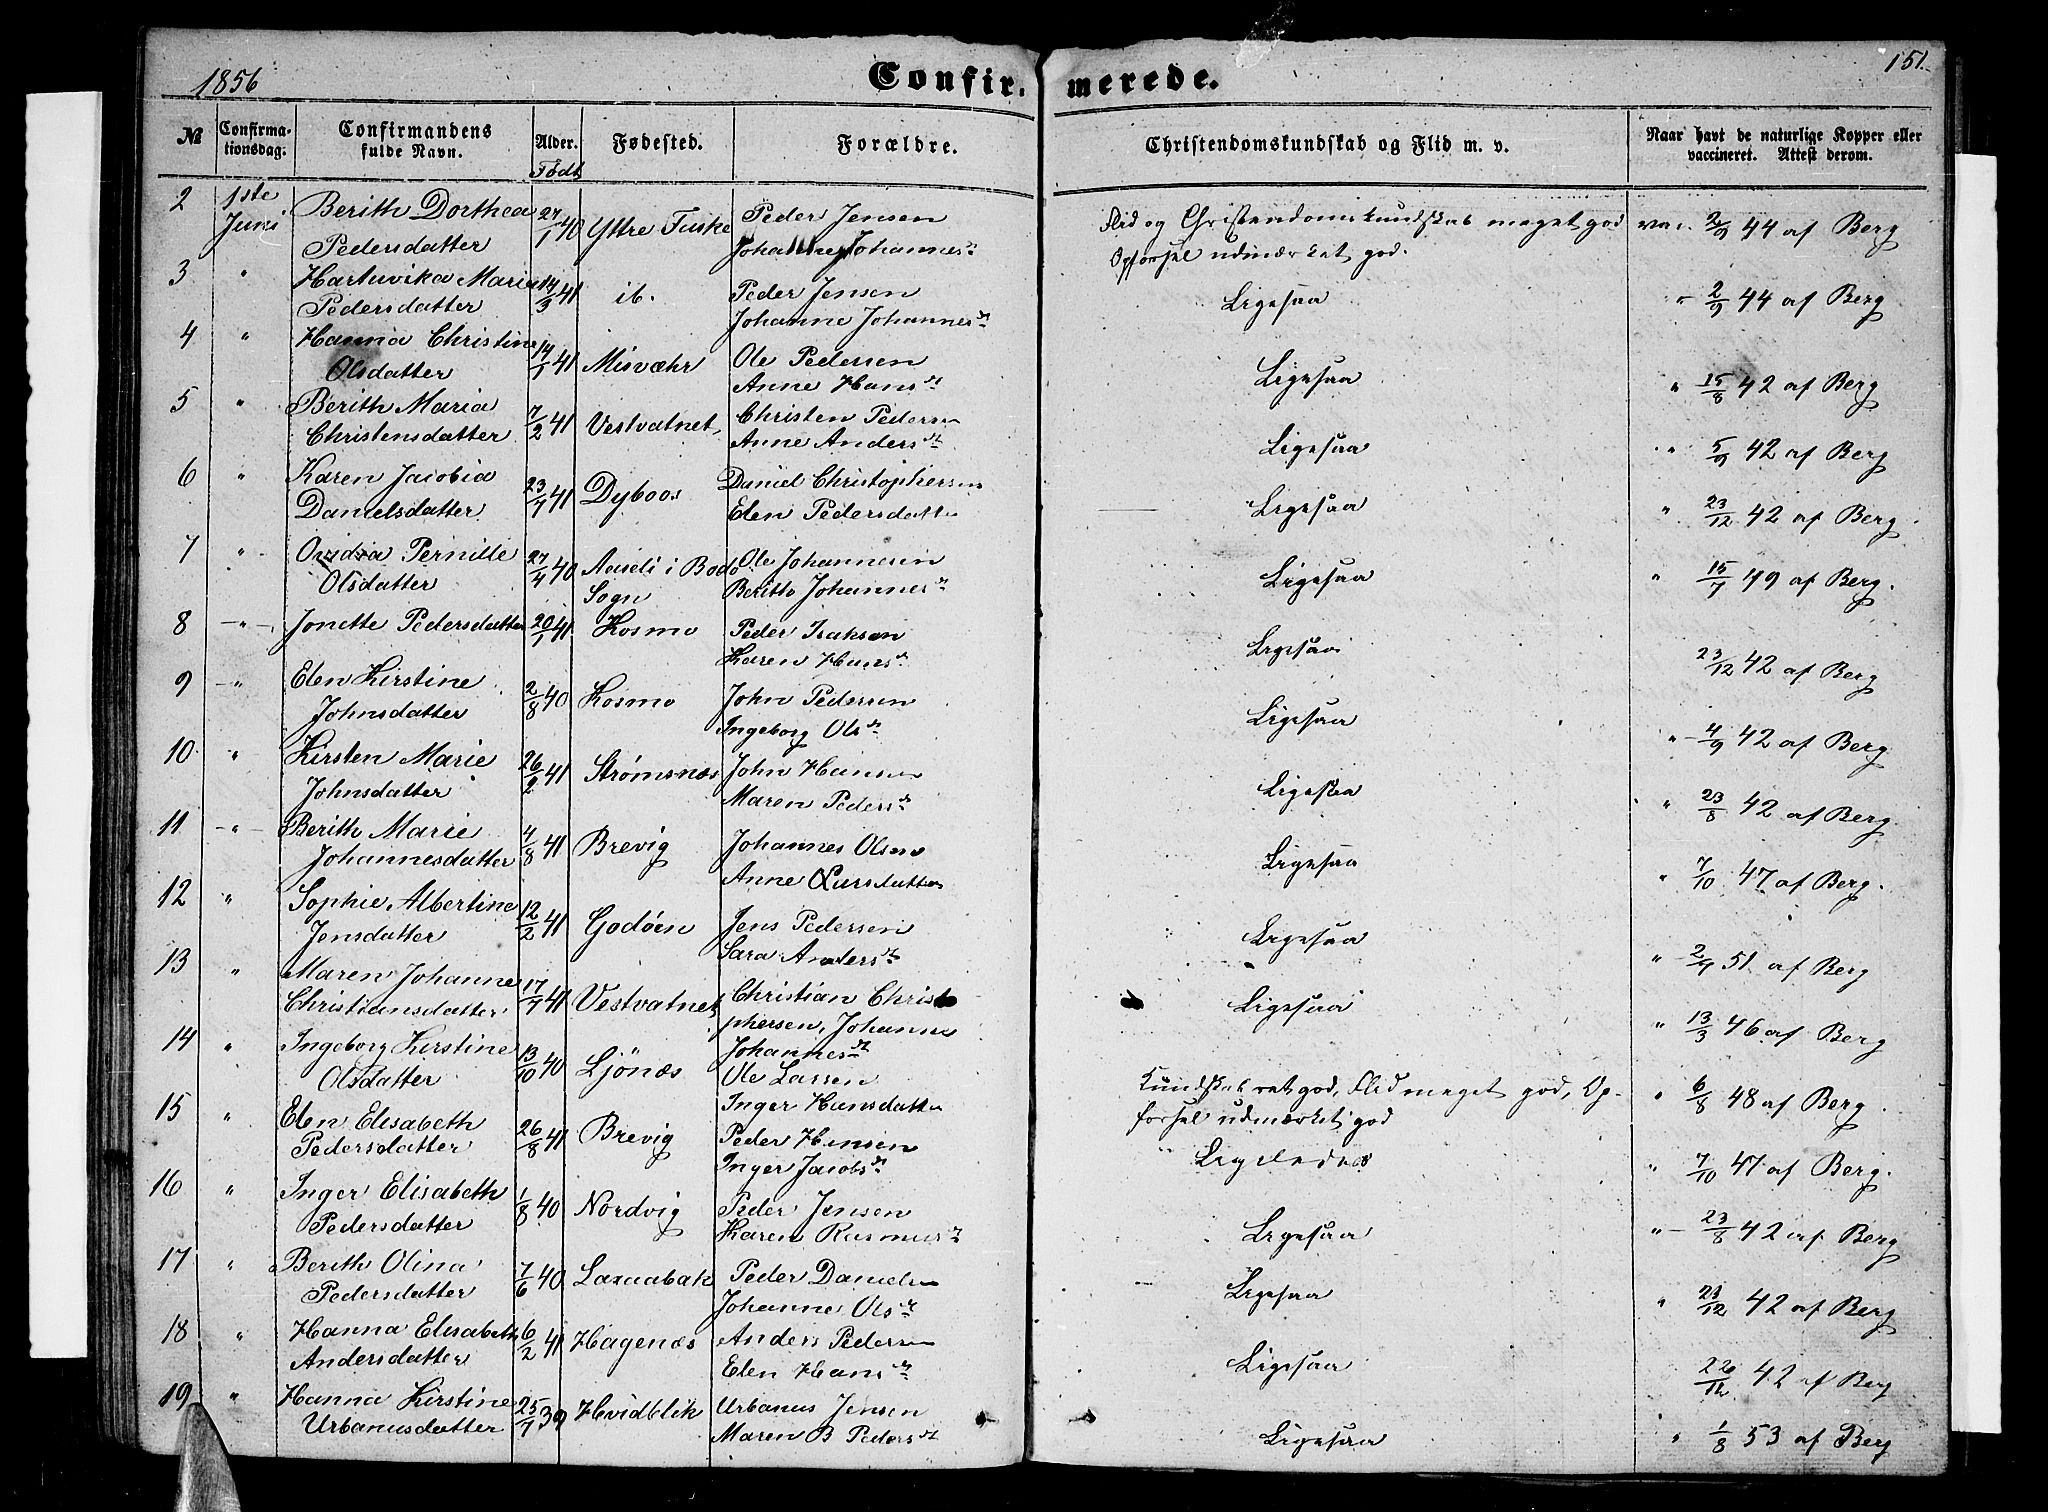 1856 Confir- merede. 151.
№ Confirma-tionsdag. Confirmandens fulde Navn. Alder. Fødested. Forældre. Christendomskundskab og Flid m. v. Naar havt de naturlige Kopper eller vaccineret. Attest derom.
Født
2 1ste Berith Dorthea 27/1 40 Yttre Fuske Peder Jensen Flid og Christendomskundskab meget god vac. 2/9 44 af Berg
Juni Pedersdatter Johanne Johannesdt Opførsel udmærket god.
3 " Hartvika Maria 14/3 41 ib. Peder Jensen Ligesaa " 2/9 44 af Berg
Pedersdatter Johanne Johannesdt
4 " Hanna Christine 14/1 41 Misvæhr Ole Pedersen Ligesaa " 15/8 42 af Berg
Olsdatter Anne Hansdt
5 " Berith Maria 7/2 41 Vestvatnet Christen Pedersen Ligesaa " 5/9 42 af Berg
Christensdatter Anne Andersdt
6 " Karen Jacobia 23/7 41 Dyboos Daniel Christophersen Ligesaa " 23/12 42 af Berg.
Danielsdatter Elen Pedersdatter
7 " Ovidia Pernille 27/4 40 Aaseli i Bodø Ole Johannesen Ligesaa " 15/7 49 af Berg.
Olsdatter Sogn Beritte Johannesdt
8 " Jonette Pedersdatter 20/1 41 Kosmo Peder Isaksen Ligesaa 23/12 42 af Berg
Karen Hansdt
9 " Elen Kirstine 2/8 40 Kosmo John Pedersen Ligesaa " 4/9 42 af Berg
Johnsdatter Ingeborg Olsdt
10 " Kirsten Marie 26/2 41 Strømsnæs John Hansen Ligesaa " 23/8 42 af Berg.
Johnsdatter Maren Pedersdt
11 " Berith Marie 4/8 41 Brevig Johannes Olsen Ligesaa " 7/10 47 af Berg.
Johannesdatter Anne Larsdatter
12 " Sophie Albertine 12/2 41 Godøen Jens Pedersen Ligesaa " 2/9 51 af Berg
Jensdatter Sara Andersdt
13 " Maren Johanne 17/7 41 Vestvatnet Christian Christo Ligesaa " 13/3 46 af Berg
Christiansdatter phersen, Johanne
Johannesdt
14 " Ingeborg Kirstine 13/10 40 Ljönæs Ole Larsen Kundskab ret god, Flid meget god, Op- " 6/8 48 af Berg.
Olsdatter Inger Hansdatter førsel udmærket god
15 " Elen Elisabeth 26/8 41 Brevig Peder Hansen Ligeledes " 7/10 47 af Berg.
Pedersdatter Inger Jacobsdt
16 " Inger Elisabeth 1/8 40 Nordvig Peder Jensen Ligesaa " 23/8 42 af Berg
Pedersdatter Karen Rasmusdt
17 " Berith Olina 7/6 40 Laxaabak Peder Danielsen Ligesaa " 23/12 42 af Berg
Pedersdatter Johanne Olsdt
18 " Hanna Elisabeth 6/2 41 Hagenæs Anders Pedersen Ligesaa 22/12 42 af Berg
Andersdatter Elen Hansdt
19 " Hanna Kirstine 25/7 39 Hvidblik Urbanus Jensen Ligesaa " 1/8 53 af Berg
Urbanusdatter Maren B Pedersdt